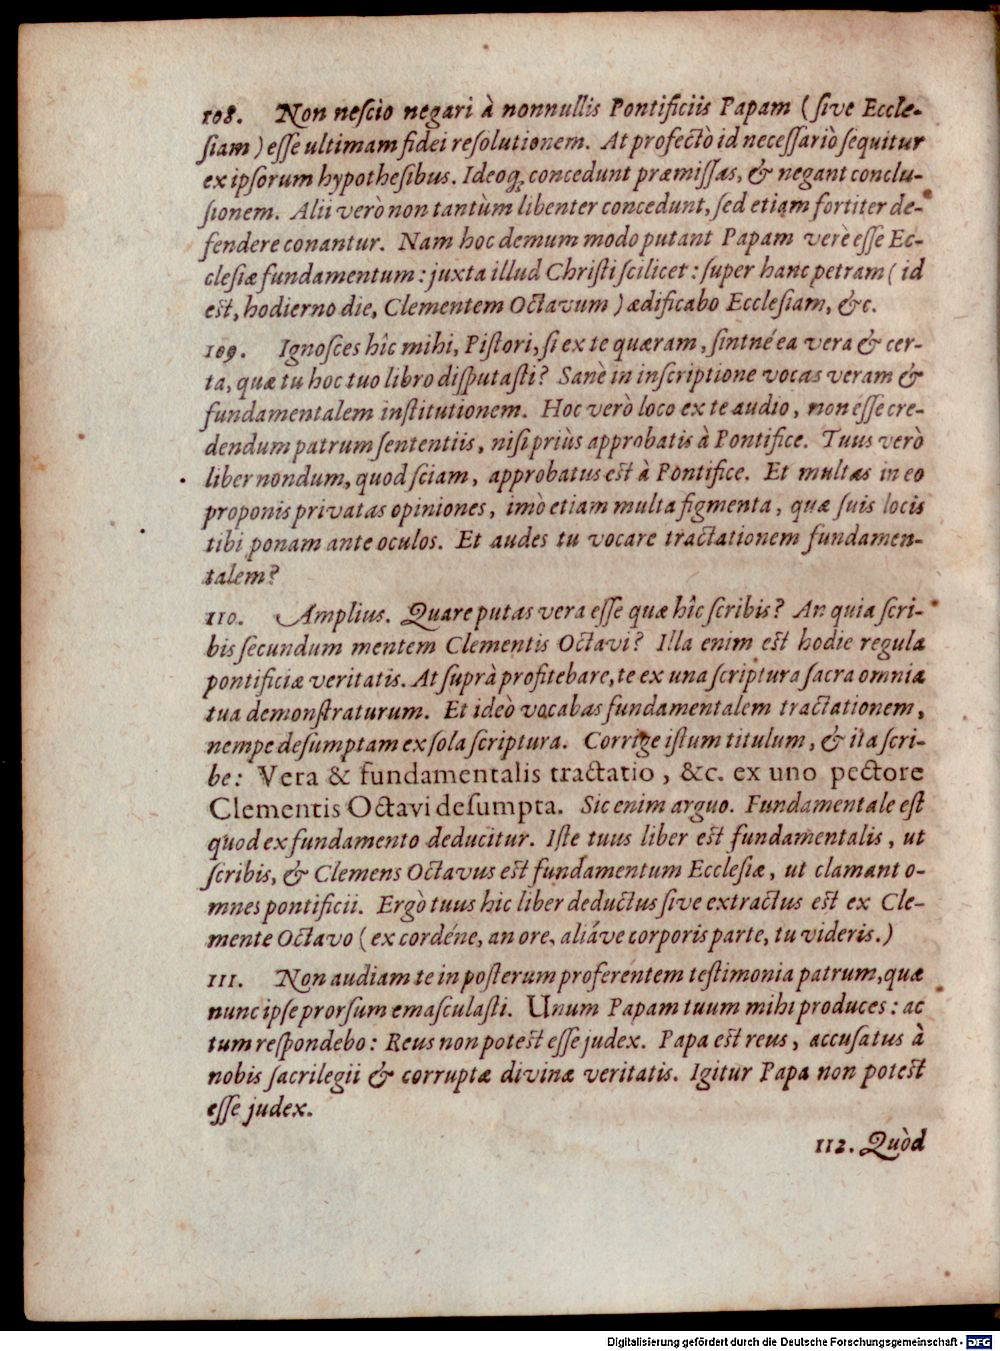 108. Non neſcio negari à nonnullis Pontificiis Papam (ſive Eccle-
ſiam) eſſe ultimam fidei reſolutionem. At profectò id neceſſariò ſequitur
ex ipſorum hypotheſibus. Ideoq; concedunt præmiſſas, & negant conclu-
ſionem. Alii verò non tantùm libenter concedunt, ſed etiam fortiter de-
fendere conantur. Nam hoc demum modo putant Papam verè eſſe Ec-
cleſiæ fundamentum: juxta illud Chriſti ſcilicet: ſuper hanc petram (id
est, hodierno die, Clementem Octavum) ædificabo Eccleſiam, &c.
109. Ignoſces hîc mihi, Piſtori, ſi ex te quæram, ſintné ea vera & cer-
ta, quæ tu hoc tuo libro diſputaſti? Sanè in inſcriptione vocas veram &
fundamentalem inſtitutionem. Hoc verò loco ex te audio, non eſſe cre-
dendum patrum ſententiis, niſi priùs approbatis à Pontifice. Tuus verò
liber nondum, quod ſciam, approbatus est à Pontifice. Et multas in eo
proponis privatas opiniones, imò etiam multa figmenta, quæ ſuis locis
tibi ponam ante oculos. Et audes tu vocare tractationem fundamen-
talem?
110. Amplius. Quare putas vera eſſe quæ hîc ſcribis? An quia ſcri-
bis ſecundum mentem Clementis Octavi? Illa enim est hodie regula
pontificiæ veritatis. At ſuprà profitebare, te ex una ſcriptura ſacra omnia
tua demonſtraturum. Et ideò vocabas fundamentalem tractationem,
nempe deſumptam ex ſola ſcriptura. Corrige iſtum titulum, & ita ſcri-
be: Vera & fundamentalis tractatio, &c. ex uno pectore
Clementis Octavi deſumpta. Sic enim arguo. Fundamentale eſt
quod ex fundamento deducitur. Iſte tuus liber est fundamentalis, ut
ſcribis, & Clemens Octavus est fundamentum Eccleſiæ, ut clamant o-
mnes pontificii. Ergò tuus hic liber deductus ſive extractus est ex Cle-
mente Octavo (ex cordéne, an ore, aliáve corporis parte, tu videris.)
111. Non audiam te in poſterum proferentem teſtimonia patrum, quæ
nunc ipſe prorſum emaſculaſti. Unum Papam tuum mihi produces: ac
tum reſpondebo: Reus non potest eſſe judex. Papa est reus, accuſatus à
nobis ſacrilegii & corruptæ divinæ veritatis. Igitur Papa non potest
eſſe judex.
112. Quòd
Digitalisierung gefördert durch die Deutsche Forschungsgemeinschaft - DFG